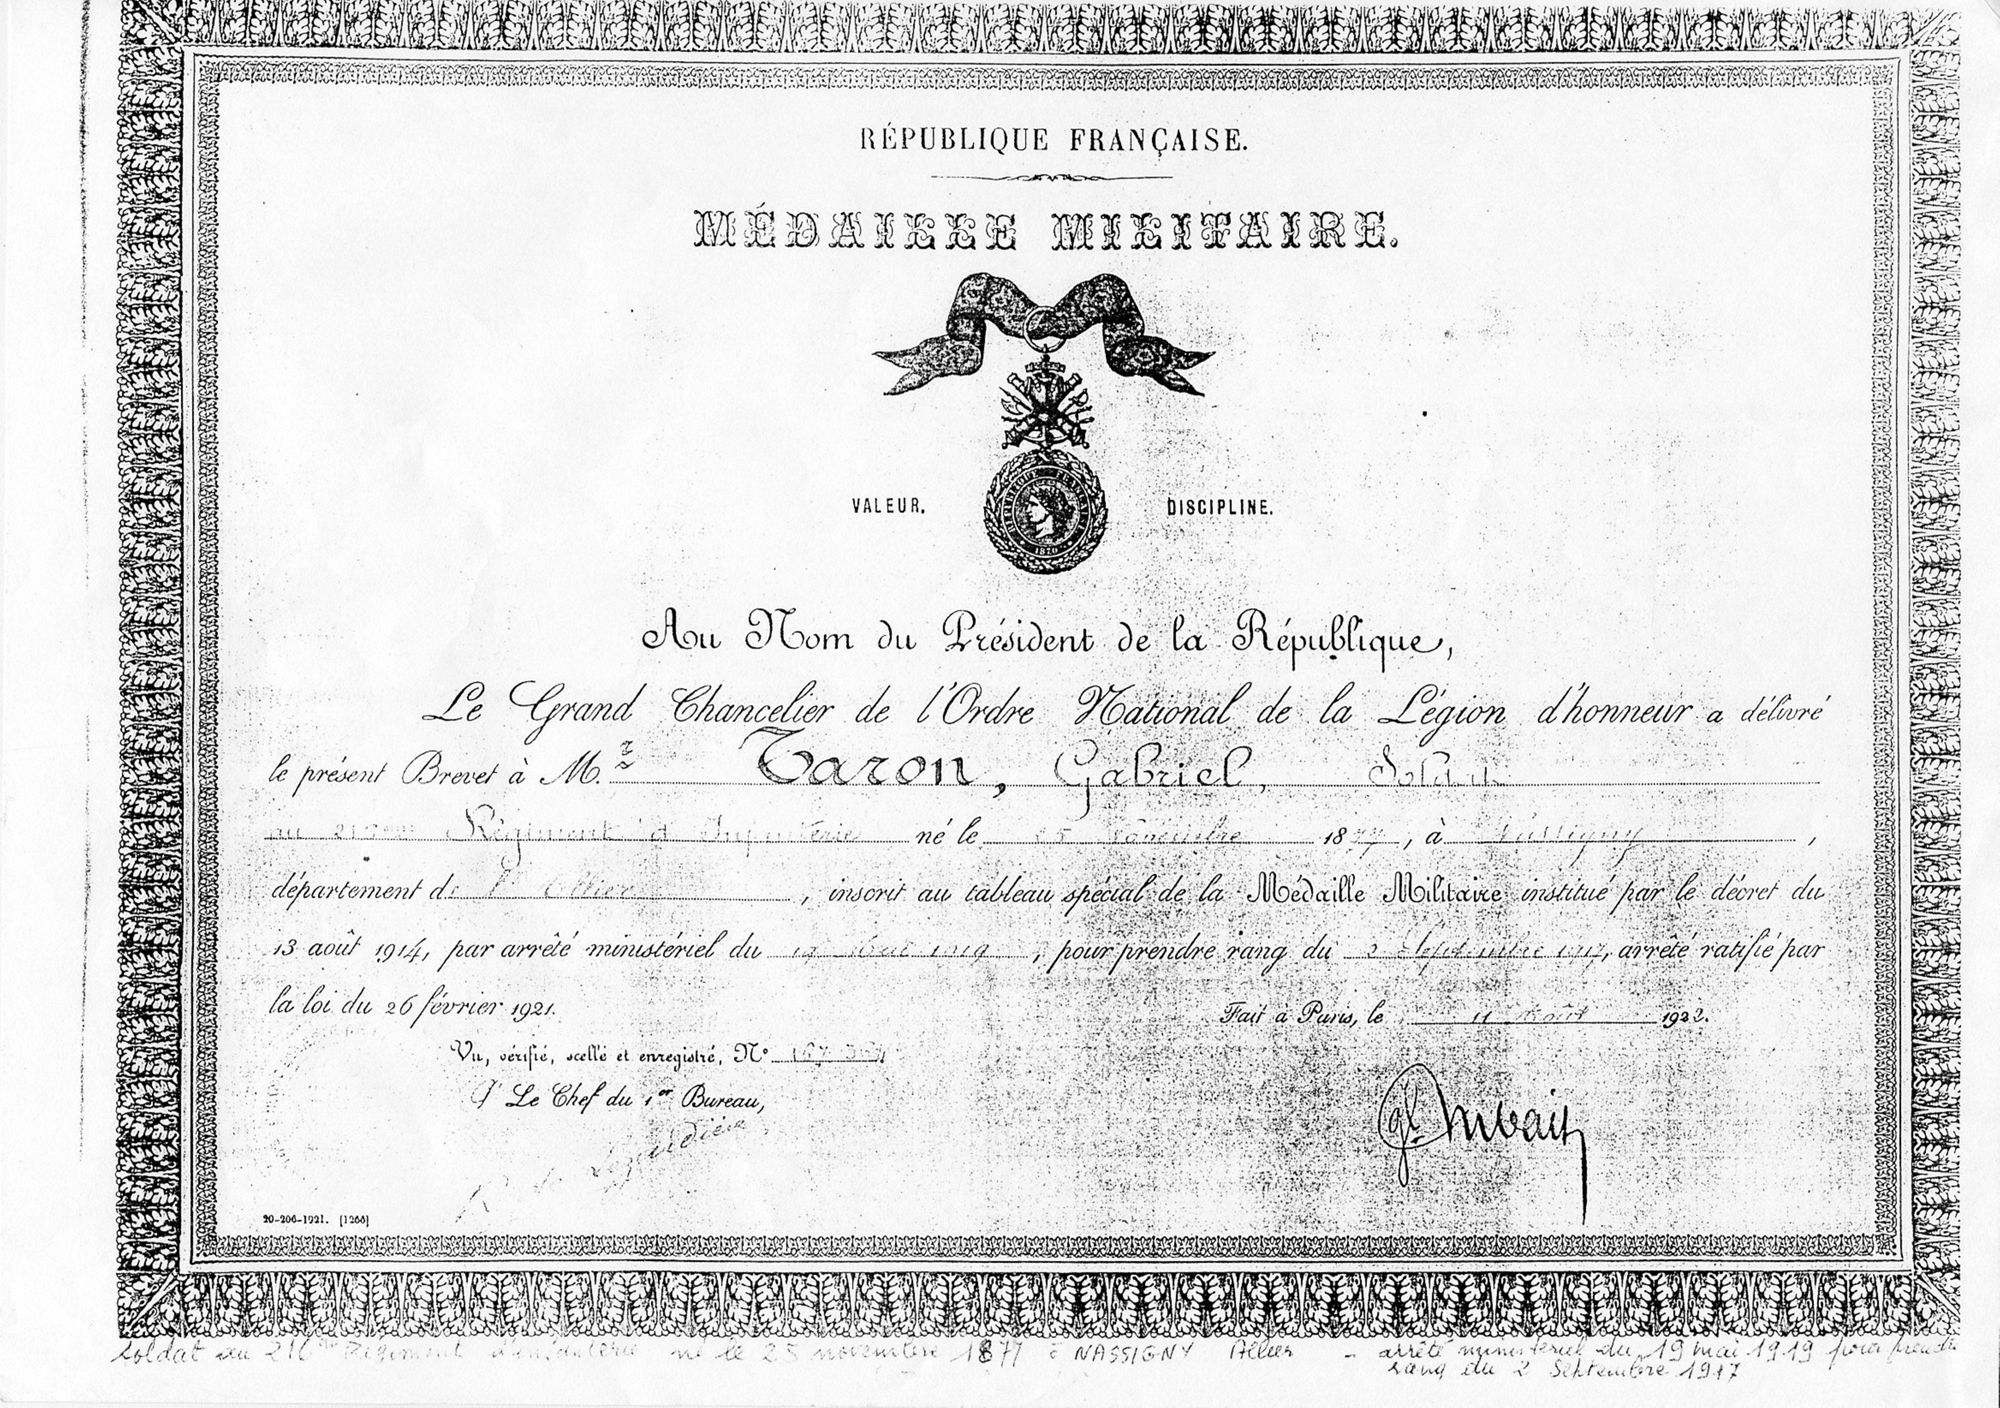 RÉPUBLIQUE FRANÇAISE.
MÉDAILLE MILITAIRE.
VALEUR. DISCIPLINE.
RÉPUBLIQUE FRANÇAISE
1870
Au Nom du Président de la République,
Le Grand Chancelier de l'Ordre National de la Légion d'honneur a délivré
le présent Brevet à M.r Taron, Gabriel, Soldat
au Régiment d'Infanterie né le 25 novembre 1877, à Nassigny,
département de l'Allier, inscrit au tableau spécial de la Médaille Militaire institué par le décret du
13 août 1914, par arrêté ministériel du 19 Mai 1919, pour prendre rang du 2 Septembre 1917, arrêté ratifié par
la loi du 26 février 1921.
Fait à Paris, le 11 Août 1922.
Vu, vérifié, scellé et enregistré, N°
Le Chef du 1er Bureau,
20-206-1921. [1266]
Soldat au 216me Régiment d'infanterie né le 25 novembre 1877 à NASSIGNY Allier - arrêté ministériel du 19 mai 1919 pour prendre
rang du 2 Septembre 1917